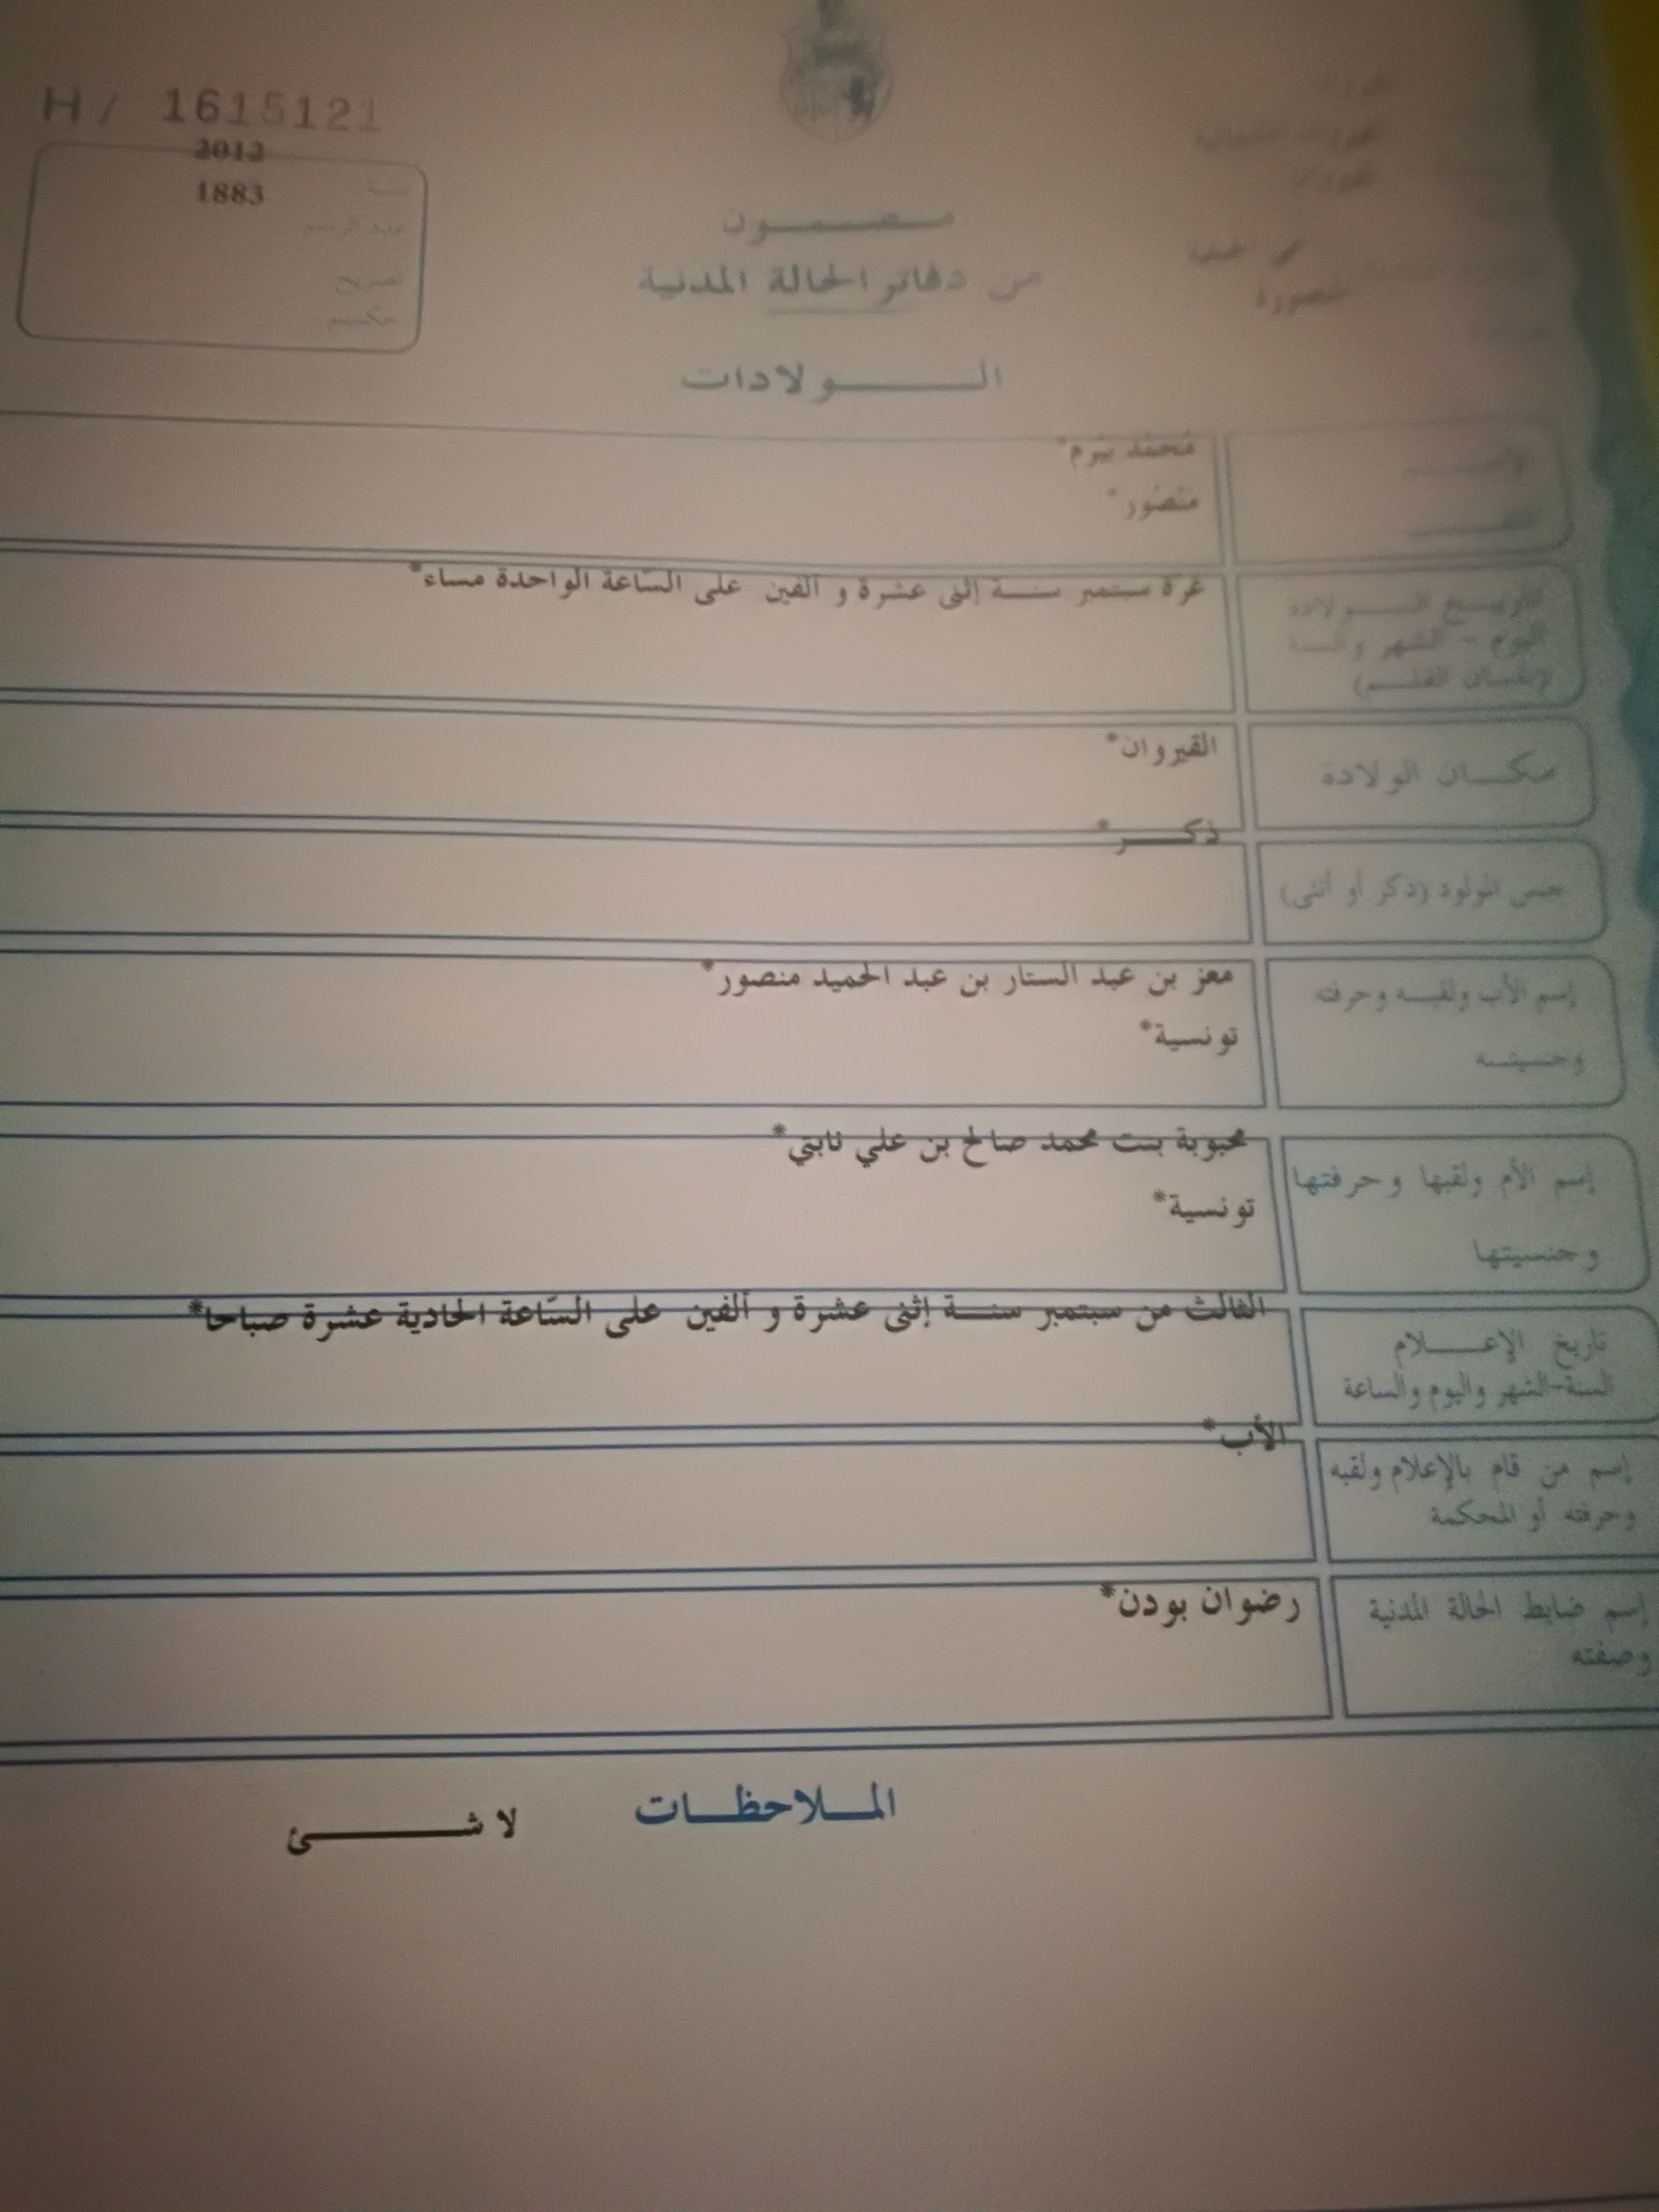 H / 1615121
2012
1883
عدد الرسم
تصريح
حكم
مضمون
من دفاتر الحالة المدنية
الولادات
محمد بيرم*
منصور*
تاريخ الولادة
اليوم - الشهر والسنة
(بلسان القلم)
غرة سبتمبر سنة إثنى عشرة و ألفين على السّاعة الواحدة مساء*
مكان الولادة
القيروان*
جنس المولود (ذكر أو أنثى)
ذكر*
إسم الأب ولقبه وحرفته
وجنسيته
معز بن عبد الستار بن عبد الحميد منصور*
تونسية*
إسم الأم ولقبها وحرفتها
وجنسيتها
محبوبة بنت محمد صالح بن علي نابتي*
تونسية*
تاريخ الإعلام
السنة-الشهر واليوم والساعة
الثالث من سبتمبر سنة إثنى عشرة و ألفين على السّاعة الحادية عشرة صباحا*
إسم من قام بالإعلام ولقبه
وحرفته أو المحكمة
الأب*
إسم ضابط الحالة المدنية
وصفته
رضوان بودن*
الملاحظات
لا شئ